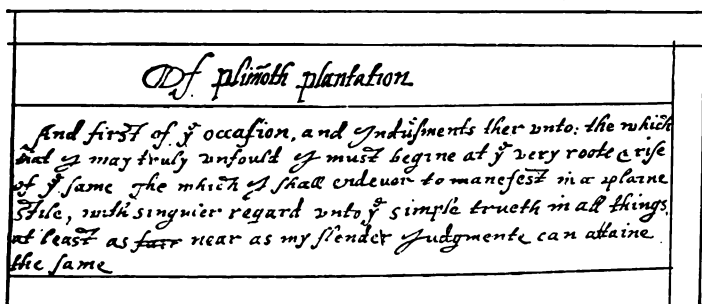 Of plim̃oth plantation
And first of yͤ occasion, and Indusments ther vnto; the which
that I may truly vnfould, I must begine at yͤ very roote & rise
of yͤ same. The which I shall endevor to manefest in a plaine
stile, with singuler regard vnto yͤ simple trueth in all things,
at least as fair near as my slender Judgmente can attaine
the same